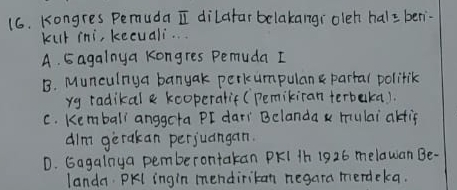 16. Kongres Pemuda II dilatarbelakangi oleh hal² beri-
kut ini, kecuali...
A. Gagalnya Kongres Pemuda I
B. Munculnya banyak perkumpulan & partai politik
yg radikal & kooperatif (pemikiran terbuka).
C. Kembali anggota PI dari Belanda & mulai aktif
dlm gerakan perjuangan.
D. Gagalnya pemberontakan PKI th 1926 melawan Be-
landa. PKI ingin mendirikan negara merdeka.